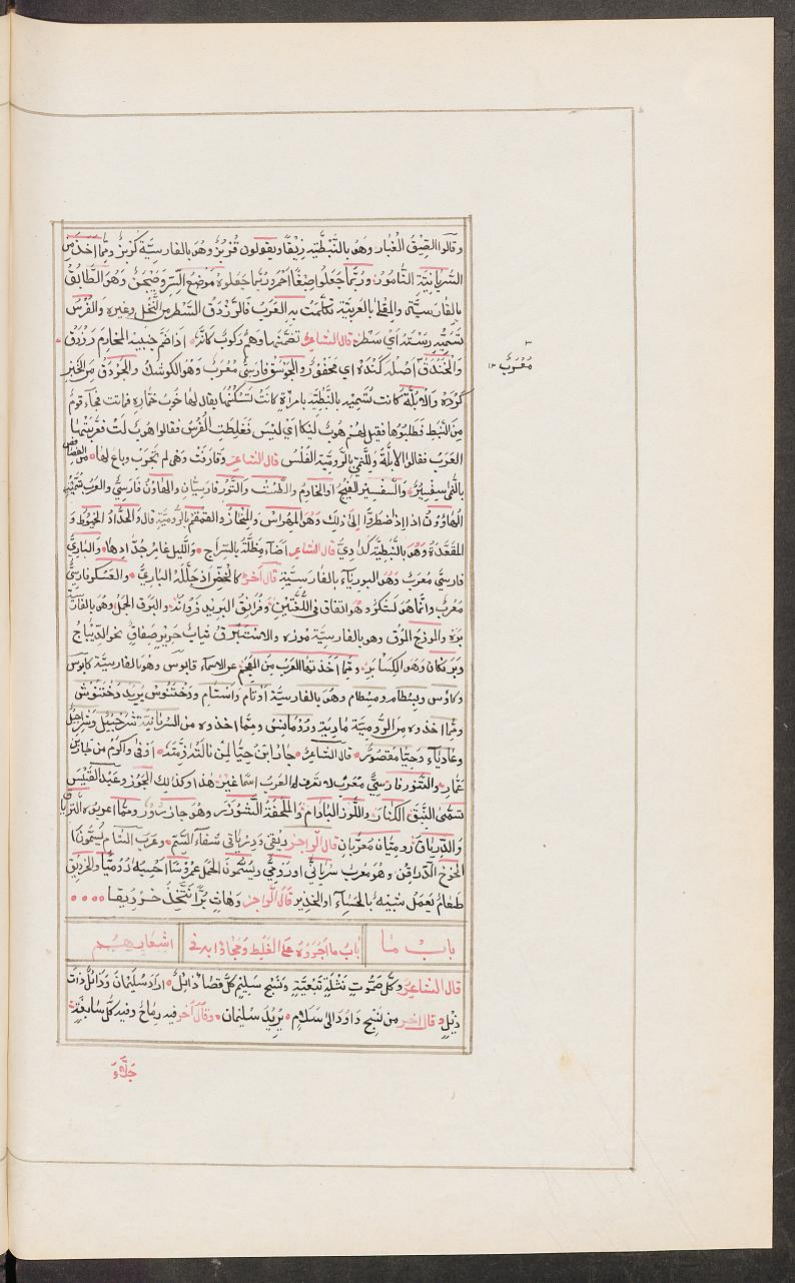 وقالوا الصِّيْقُ الغُبار وهو بالنَّبَطِيَّة زِيقًا ويقولون قُرْبُزٌ وهو بالفارسيَّة كُرْبُزٌ وممّا اخذ من
السّريانيّة التّامور وربّما جعلوا صِبْغًا احمر وربّما جعلوه مَوضع السِّرّ وَالطَّيْجَنُ وهو الطّابِقُ
بالفارسيّة والمِقْلَى بالعربيّة تكلّمت به العرب قال الرَّزْدَق السَّطر من النّخل وغيره والفُرْس
تسمّيه رَسْتَه اي سَطر قال الشاعر تضمّنها وهم ركوب كانّه اذا ضمّ جنبيه المخارم رزدق
مُعَرَّبٌ
وَالخَنْدَق اصله كَنْدَه اي محفور والجَوْسَق فارسيّ معرّب وهو الكوشك والجَرْدَق من الخبز
كَرْدَه والأُبُلّة كانت تسمّيه بالنّبطيّة بامرأة كانت تسكنها يقال لها هوب خمّارة فماتت فجاء قوم
من النّبط فطلبوها فقيل لهم هوب ليكا اي ليس فغلطت الفرس فقالوا هوب لت فعرّبتها
العرب فقالوا الأبلّة والنُّمِّيّ بالرّوميّة الفَلْس قال الشاعر وقارفت وهي لم تجرب وباع لها من الفصافص
بالنّمّيّ سِفْسِيرُ والسّفسير الفَيْج او الخادم والطّست والتّور فارسيّان والهاوُن فارسيّ والعرب تسمّيه
الهاوون اذا اضطرّوا الى ذلك وهو المِهراس والمِنحاز والقُمْقُم بالرّوميّة قال والجُدّاد الخيوط و
المعقّدة وهو بالنّبطيّة كدادي قال الشاعر اضاء مظلّته بالسّراج والليل غامر جدّادها والباريّ
فارسيّ معرب وهو البورياء بالفارسيّة قال آخر كالخصّ اذ جلّله الباريّ والعسكر فارسيّ
معرّب وانّما هو لشكر وهو اتفاق في اللّغتين وفُرانِق البريد بَرْوانَه والبَرَق الحمل وهو بالفارسية
بره والموزج الموق وهو بالفارسيّة موزه والاستبرق ثياب حرير صفاق نحو الدّيباج
وممّا اخذتها العرب من العجم عن الاسماء قابوس وهو بالفارسيّة كابوس
وكاوس وبسطام وهو بالفارسيّة اوتام واستام ودختنوس يريد دختنوش
وممّا اخذوه من الروميّة مارية ورومانس وممّا اخذوه من السريانيّة شرحبيل وشراحيل
وعادياء وحِيّا مقصور قال الشاعر جار ابن حيّا لمن نالته ذمّته اوفى واكرم من جار ابن
عمّار والتّنّور فارسيّ معرّب لا تعرف له العرب اسما غير هذا وكذلك الجوز وعبد القيس
تسمّي النّبق الكنار واللّوز الباذام والملحفة الشّوذر وهو جادر وممّا اعربوه التّرياق
والدّرياق روميّان معرّبان قال الراجز ريقي ودرياقي شفاء السّمّ وعرب الشام يسمّون
الخوخ الدّراقن وهو معرب سريانيّ او روميّ ويسمّون الحمل عمروسا احسبه روميّا والخرديق
طعام يعمل شبيه بالحساء او الخزير قال الرّاجز وهات برّا نتّخذ خرديقا
باب ما باب ما اجروه على الغلط ومجازا به في اشعارهم
قال الشاعر وكلّ صموت نثلة تبّعيّة ونسج سليم كلّ قضّاء ذائل اراد سليمان وذائل ذات
ذيل وقال اخر من نسج داود ابى سلّام يريد سليمان وقال آخر فيه رماح وفيه كلّ سابغة
جدلاء